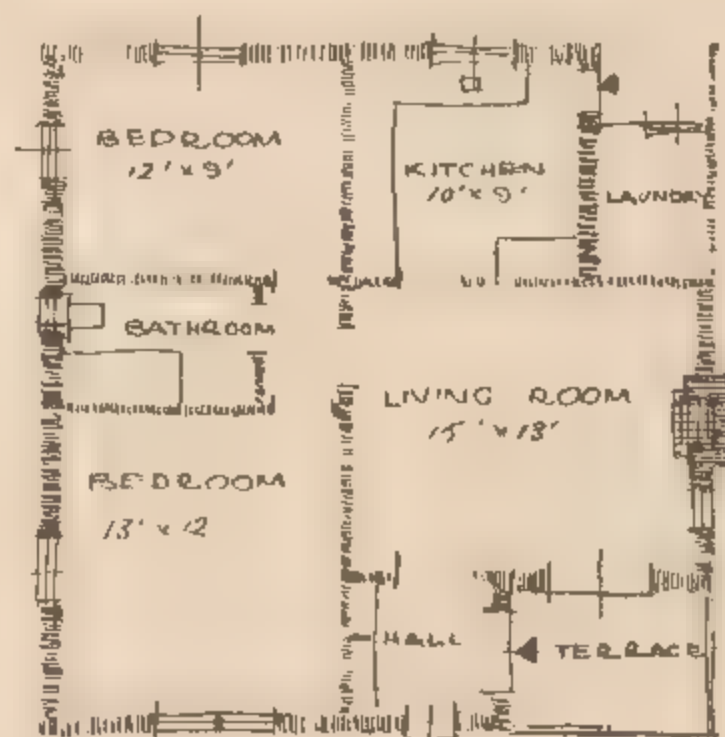 BEDROOM
12' x 9'
KITCHEN
10' x 9'
LAUNDRY
BATHROOM
LIVING ROOM
15' x 13'
BEDROOM
13' x 12
HALL
TERRACE